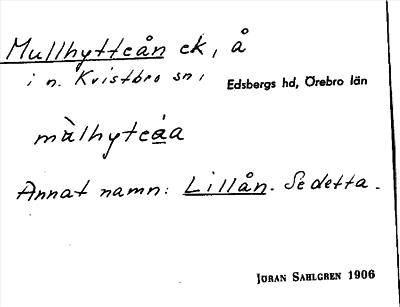 Mullhytteån ek, å
i n. Kvistbro sn, Edsbergs hd, Örebro län
mùlhyteáa
Annat namn: Lillån. Se detta.
JÖRAN SAHLGREN 1906